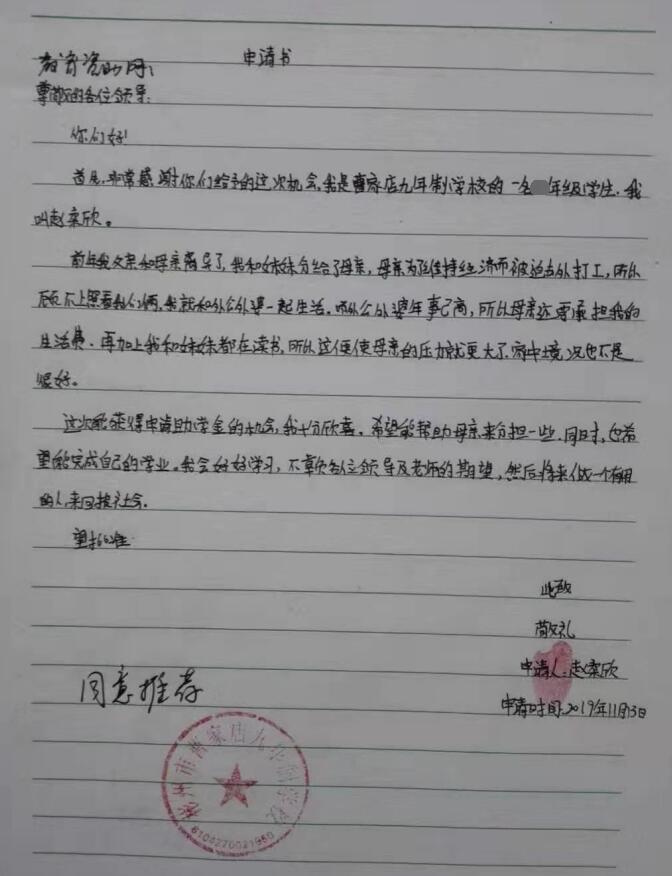 申请书
教育资助网:
尊敬的各位领导:
你们好!
首先,非常感谢你们给予的这次机会,我是曹家店九年制学校的一名年级学生.我
叫赵栾欣。
前年我父亲和母亲离异了,我和妹妹分给了母亲,母亲为了维持经济而被迫去外打工,所以
顾不上照看我们俩,我就和外公外婆一起生活.外公外婆年事已高,所以母亲还要承担我的
生活费.再加上我和妹妹都在读书,所以这便使母亲的压力就更大了.家中境况也不是
很好。
这次能获得申请助学金的机会,我十分欣喜.希望能帮助母亲来分担一些.同时,也希
望能完成自己的学业。我会好好学习,不辜负各位领导及老师的期望,然后将来做一个有用
的人,来回报社会.
望批准
此致
敬礼
申请人:赵栾欣
申请时间:2019年11月3日
同意推荐
彬州市曹家店九年制学校
6104270021960